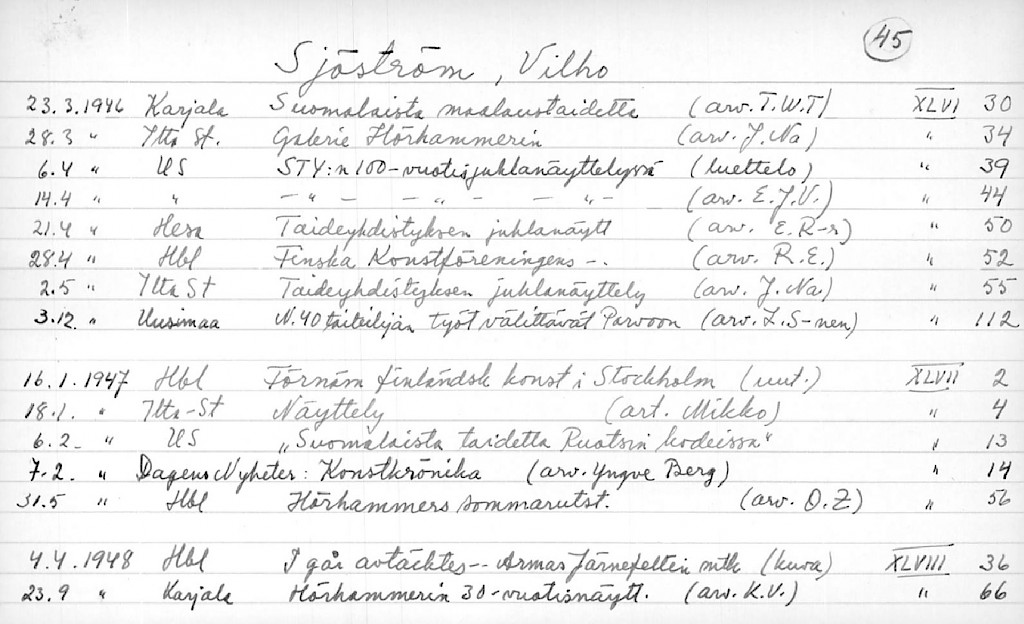 45
Sjöström, Vilho
23.3.1946 Karjala Suomalaista maalaustaidetta (arv. T.W.T) XLVI 30
28.3 " Ilta St. Galerie Hörhammerin (arv. J. Na) " 34
6.4 " US STY:n 100-vuotisjuhlanäyttelyssä (luettelo) " 39
14.4 " " - " - - " - - " - (arv. E.J.V.) " 44
21.4 " Hesa Taideyhdistyksen juhlanäytt (arv. E. R-r) " 50
28.4 " Hbl Finska Konstföreningens -. (arv. R.E.) " 52
2.5 " Ilta St Taideyhdistyksen juhlanäyttely (arv. J. Na.) " 55
3.12. " Uusimaa N. 40 taiteilijan työt välittävät Porvoon (arv. L. S-nen) " 112
16.1.1947 Hbl Förnäm finländsk konst i Stockholm (uut.) XLVII 2
18.1. " Ilta-St Näyttely (art. Mikko) " 4
6.2- " US "Suomalaista taidetta Ruotsin kodeissa" " 13
7.2. " Dagens Nyheter: Konstkrönika (arv. Yngve Berg) " 14
31.5 " Hbl Hörhammers sommarutst. (arv. O.Z) " 56
4.4.1948 Hbl I går avtäcktes -- Armas Järnefeltin mtk (kuva) XLVIII 36
23.9 " Karjala Hörhammerin 30-vuotisnäytt. (arv. K.V.) " 66